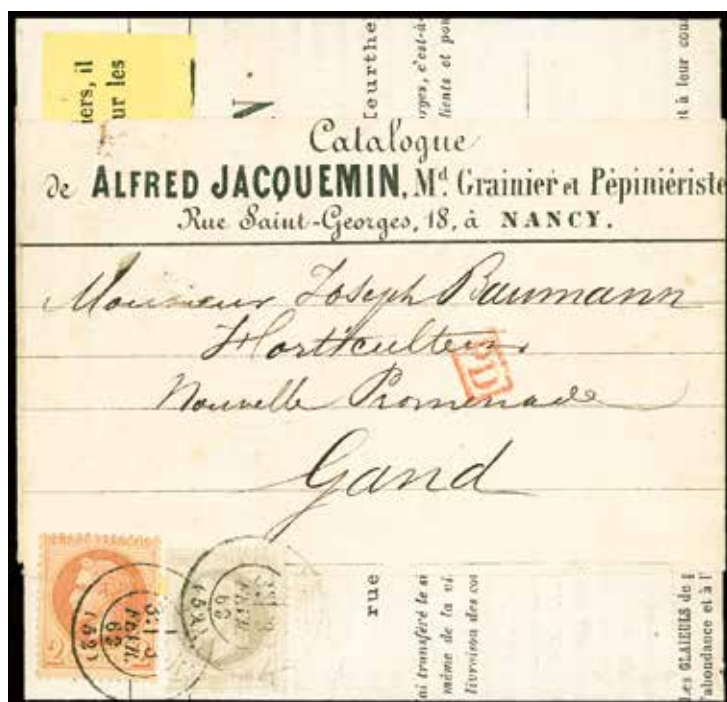 iers, il
ur les
N.
eurthe
c'est-à-
lients et pou
t à leur cou
Catalogue
de ALFRED JACQUEMIN, Md. Grainier et Pépiniériste
Rue Saint-Georges, 18, à NANCY.
Monsieur Joseph Baumann
Horticulteur
PD
Nouvelle Promenade
Gand
2
FEVR.
(52)
FEVR.
(52)
rue
ai transféré le si
même de la vi
livraison des co
Les GLAIEULS de
l'abondance et à l'